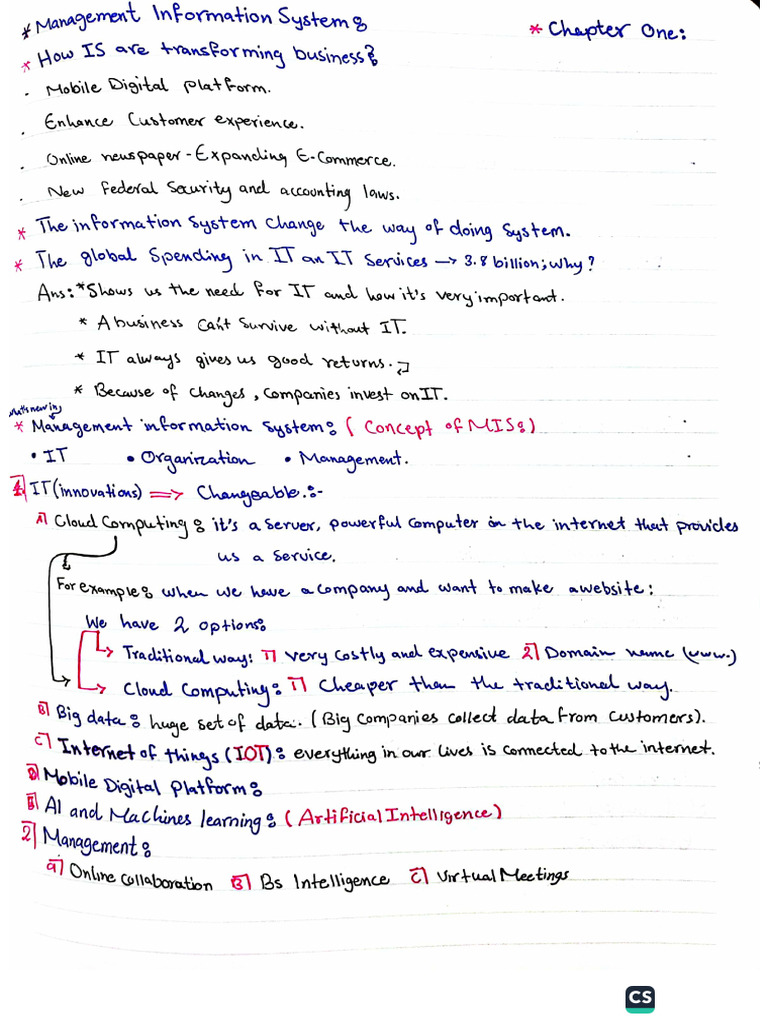 * Management Information System:
* Chapter One:
* How IS are transforming business?
. Mobile Digital platform.
. Enhance Customer experience.
. Online newspaper - Expanding E-Commerce.
. New Federal Security and accounting laws.
* The information System Change the way of doing System.
* The global Spending in IT an IT Services → 3.8 billion; Why?
Ans: * Shows us the need for IT and how it's very important.
* A business Can't Survive without IT.
* IT always gives us good returns.
* Because of changes, Companies invest on IT.
what's new in
* Management information System: (Concept of MIS:)
• IT • Organization • Management.
1] IT (innovations) ⇒ Changeable.:-
A] Cloud Computing: it's a Server, powerful Computer on the internet that provides
us a Service.
For example: when we have a company and want to make a website:
We have 2 options:
Traditional way: 1] very Costly and expensive 2] Domain name (www.)
Cloud Computing: 1] Cheaper than the traditional way.
B] Big data: huge set of data. (Big Companies collect data from Customers).
C] Internet of things (IOT): everything in our lives is connected to the internet.
D] Mobile Digital Platform:
E] AI and Machines learning: (Artificial Intelligence)
2] Management:
a] Online Collaboration B] Bs Intelligence C] Virtual Meetings
CS